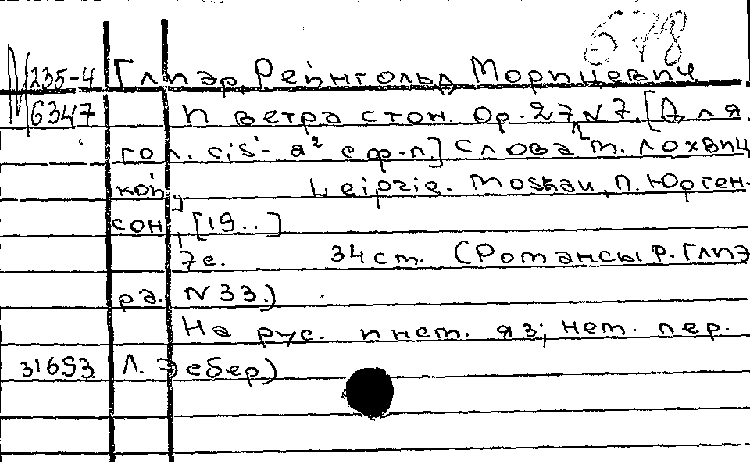 678
М 235-4 Глиэр, Рейнгольд Морицевич
6347 И ветра стон. Op. 27 N 7. [Для
гол. c¹, s¹- a² с ф-п.] Слова М. Лохвиц
кой, Leipzig. Moskau, П. Юрген-
сон, [19..]
7 с. 34 см. (Романсы Р. Глиэ
ра. N 33.)
На рус. и нем. яз; нем. пер.
31693 Л. Эсбер)